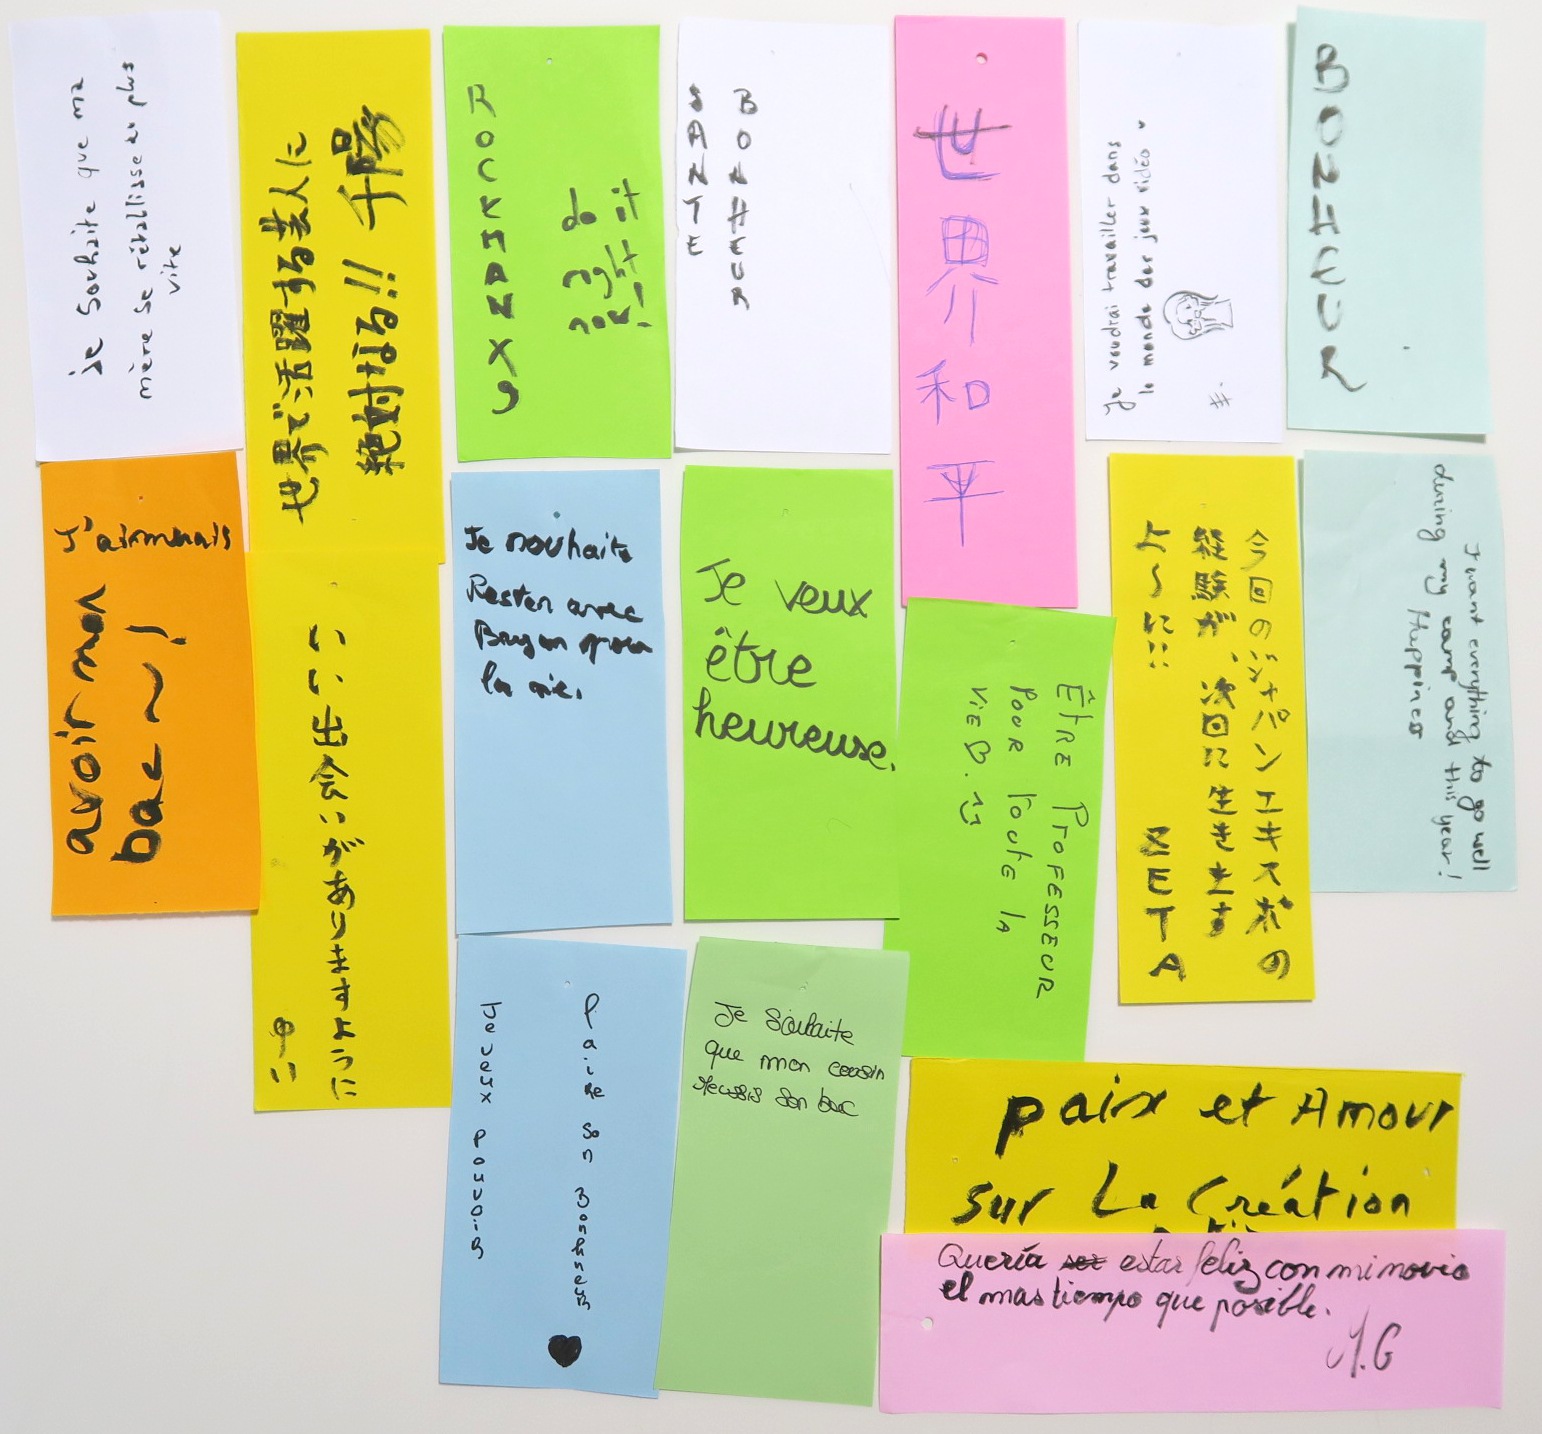 je souhaite que ma
mère se rétablisse au plus
vite
世界で活躍する芸人に
絶対なる!! 千陽
ROCKMAN X9
do it
right
now!
BONHEUR
SANTE
世界和平
Je voudrai travailler dans
le monde des jeux vidéo
BONHEUR
J'aimerais
avoir mon
bac ~!
いい出会いがありますように
Je souhaite
Rester avec
Bryan pour
la vie.
Je veux
être
heureuse.
Être Professeur
Pour toute la
vie
今回のジャパンエキスポの
経験が、次回に生きます
よ〜に::
ZETA
I want everything to go well
during my camp and this year!
Happiness
Je veux pouvoir
Faire son Bonheur
Je souhaite
que mon cousin
réussis son bac
paix et Amour
sur La Créátion
Quería estar feliz con mi novio
el mas tiempo que posible.